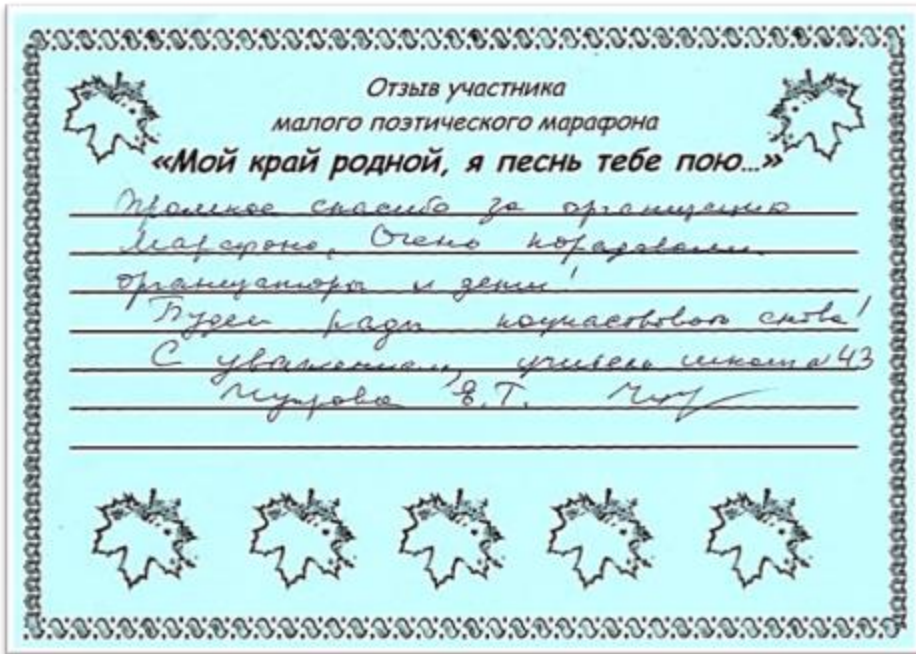 Отзыв участника
малого поэтического марафона
«Мой край родной, я песнь тебе пою...»
Огромное спасибо за организацию
марафона, Очень порадовали
организаторы и дети!
Будем рады поучаствовать снова!
С уважением, учитель школы №43
Е.Т.